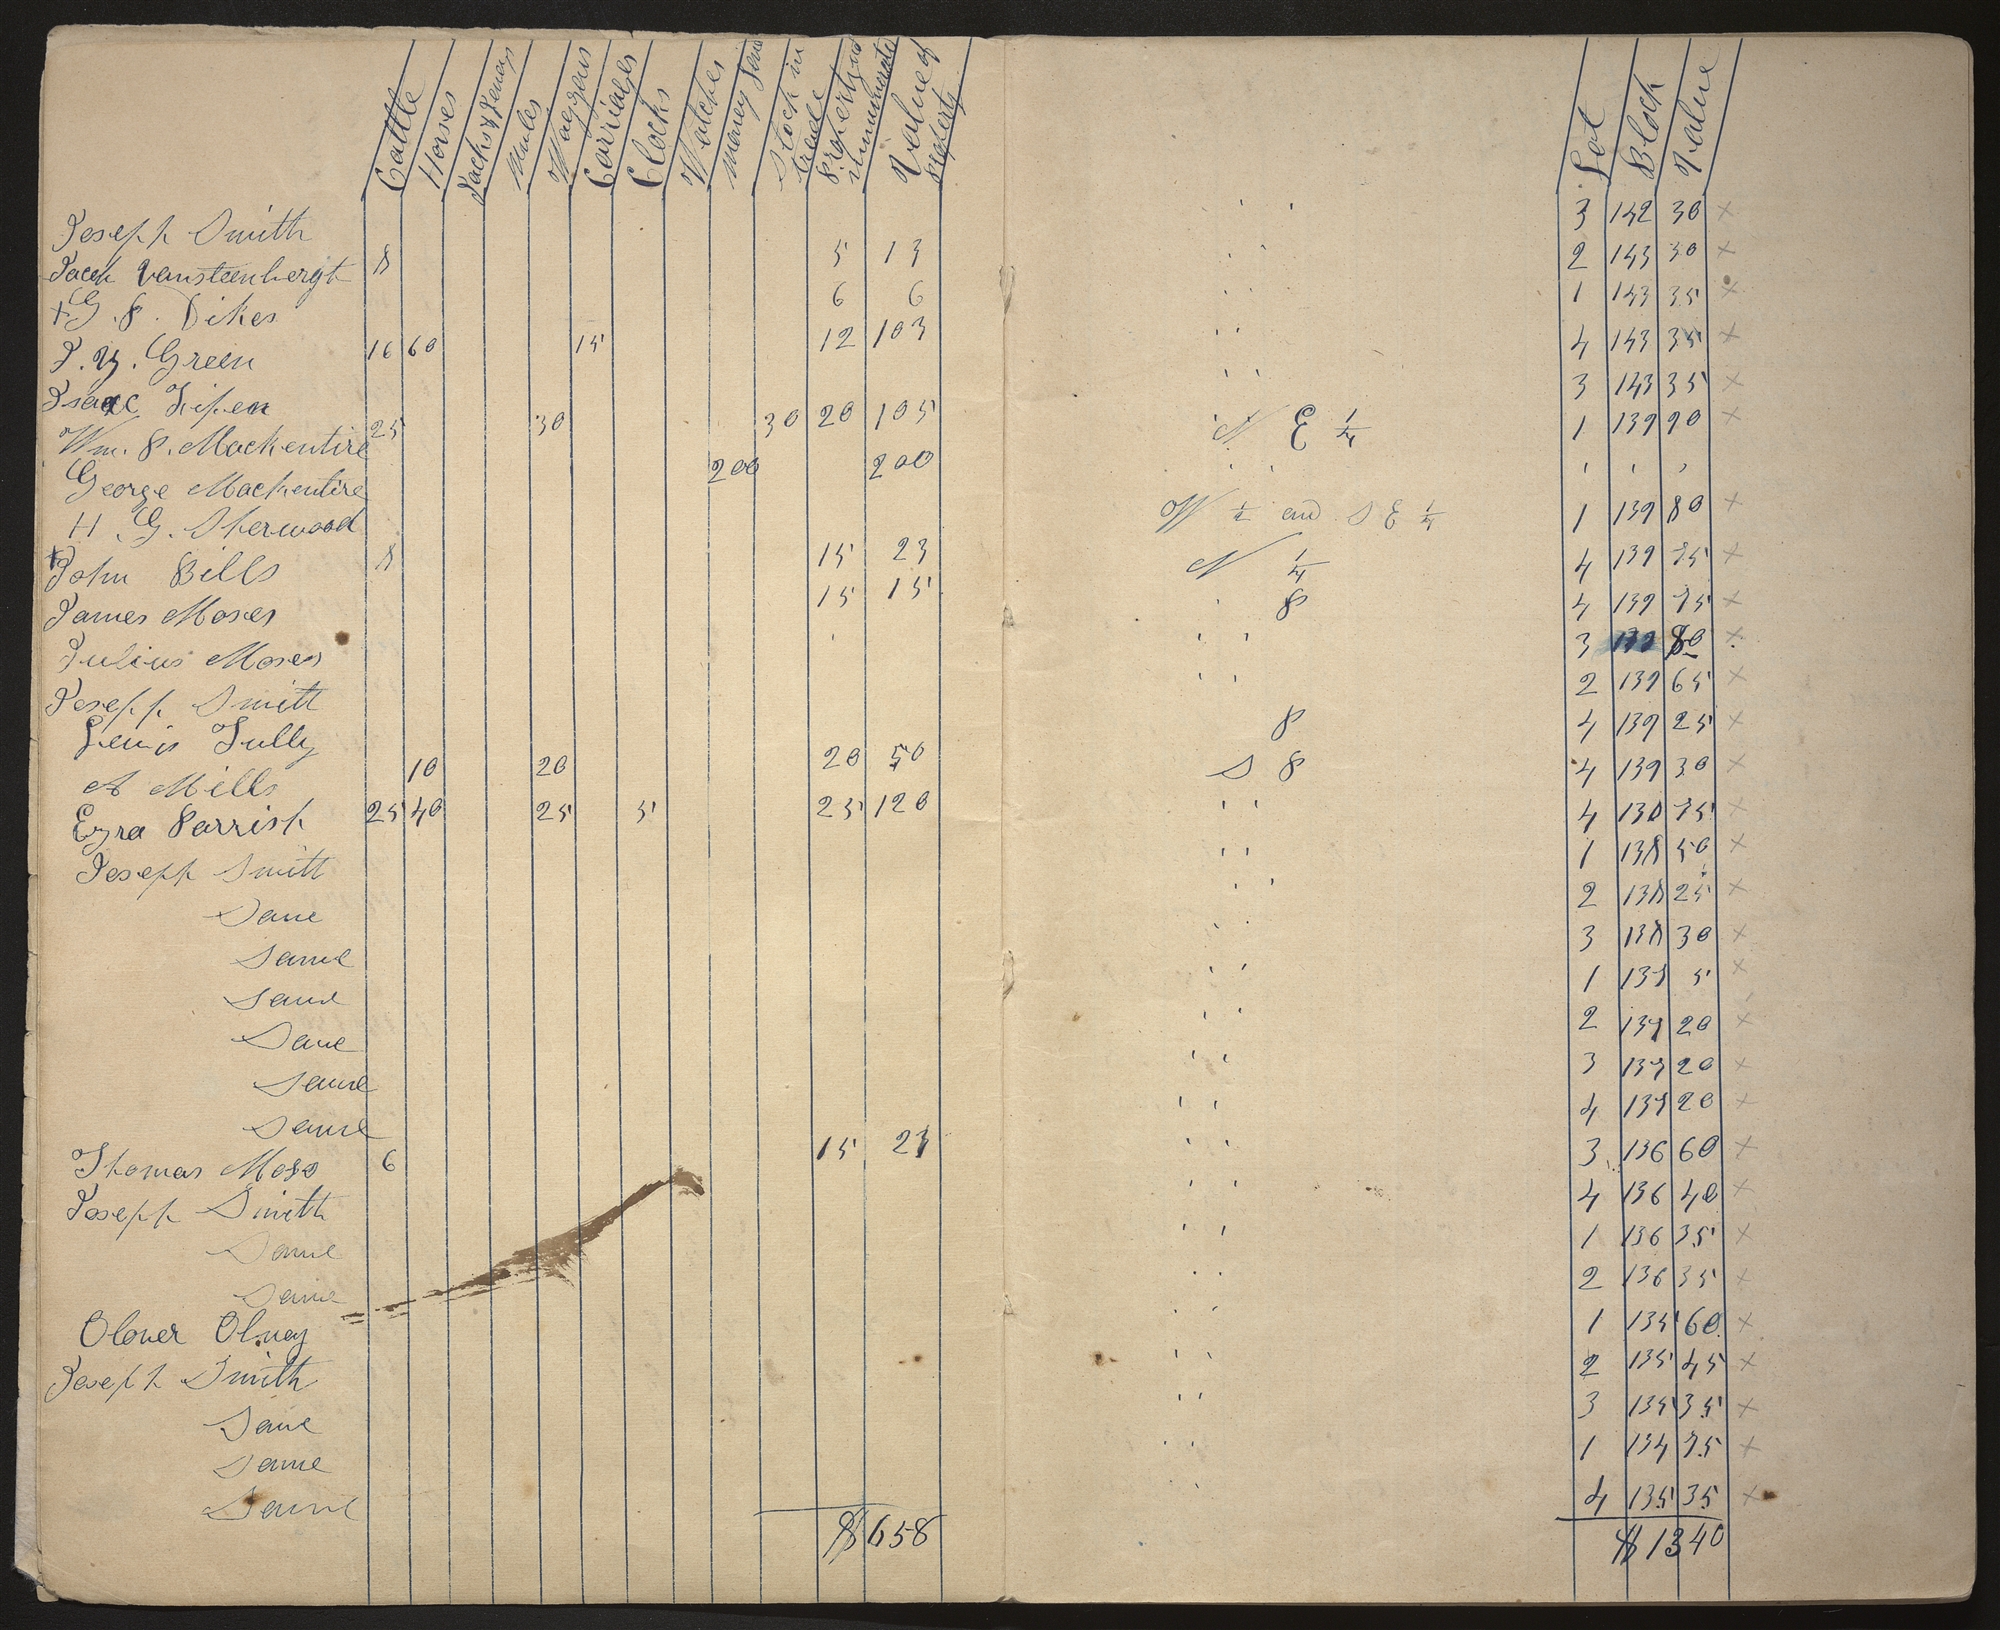 Cattle Horses Jacks & Jeneys Mules Waggons Carriages Clocks Watches money Stock in trade Property Value of Property Lot Block Value
Joseph Smith 3 142 30 ×
Vansteenbergh 8 5 13 2 143 30 ×
+ G. P. Dikes 6 6 1 143 35 ×
Green 16 60 15 12 103 4 143 35 ×
Isaac 3 143 35 ×
Wm. P. Mackentire 25 30 30 20 105 N E 1/4 1 139 90 ×
George Mackentire 200 200
H. G. Sherwood W 1/2 and S E 1/4 1 139 80 ×
+ John Bills 8 15 23 N 1/4 4 139 75 ×
James Moses 15 15 P 4 139 75 ×
Julius Moses 3 139 80 ×
Joseph Smith 2 139 65 ×
Lewis Tully P 4 139 25 ×
A Mills 10 20 20 50 S P 4 139 30 ×
Ezra Parrish 25 40 25 5 25 120 4 138 75 ×
Joseph Smith 1 138 50 ×
Same 2 138 25 ×
Same 3 138 30 ×
Same 1 137 5 ×
Same 2 137 20 ×
Same 3 137 20 ×
Same 4 137 20 ×
Thomas Moss 6 15 21 3 136 60 ×
Joseph Smith 4 136 40 ×
Same 1 136 35 ×
Same 2 136 35 ×
Olover Olney 1 135 60 ×
Joseph Smith 2 135 45 ×
Same 3 135 35 ×
Same 1 134 75 ×
Same 4 135 35 ×
$ 658 $ 1340